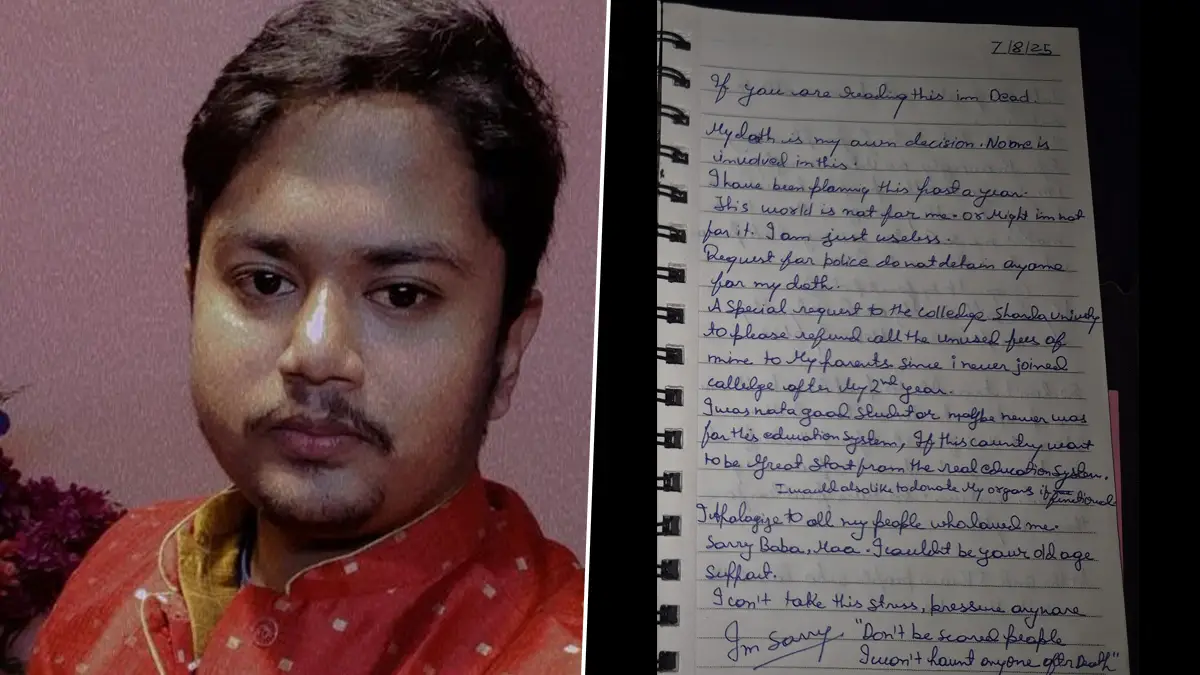 7/8/25
If you are reading this im Dead.
My death is my own decision. No one is
involved in this.
I have been planning this past a year.
This world is not for me. Or Might im not
for it. I am just useless.
Request for police do not detain anyone
for my death.
A Special request to the colledge Sharda
to please refund all the unused fees of
mine to My parents. Since i never joined
after My 2nd year.
I was not a good student or maybe never was
for this education system, If this country want
to be Great Start from the real education System.
I would also like to donate My organs if functional
I Apologize to all my people who loved me.
Sorry Baba, Maa. I couldn't be your old age
support.
I can't take this stress, pressure anymore
I'm Sorry "Don't be scared people
I won't haunt anyone after Death"